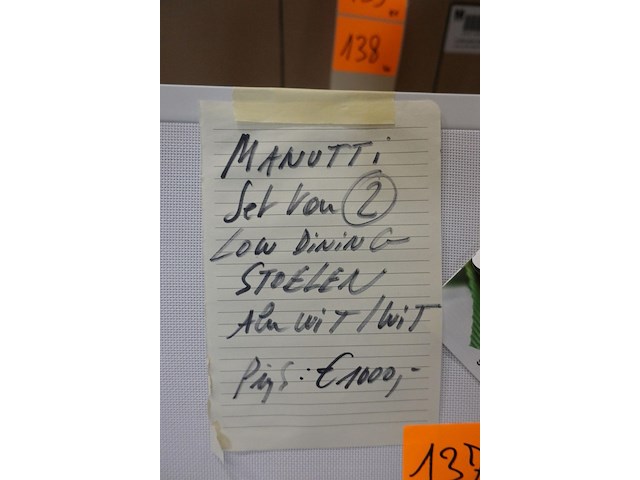 138
MANUTTi
Set Van 2
LOW DINING
STOELEN
ALU WIT/WIT
PijS: €1000,-
137